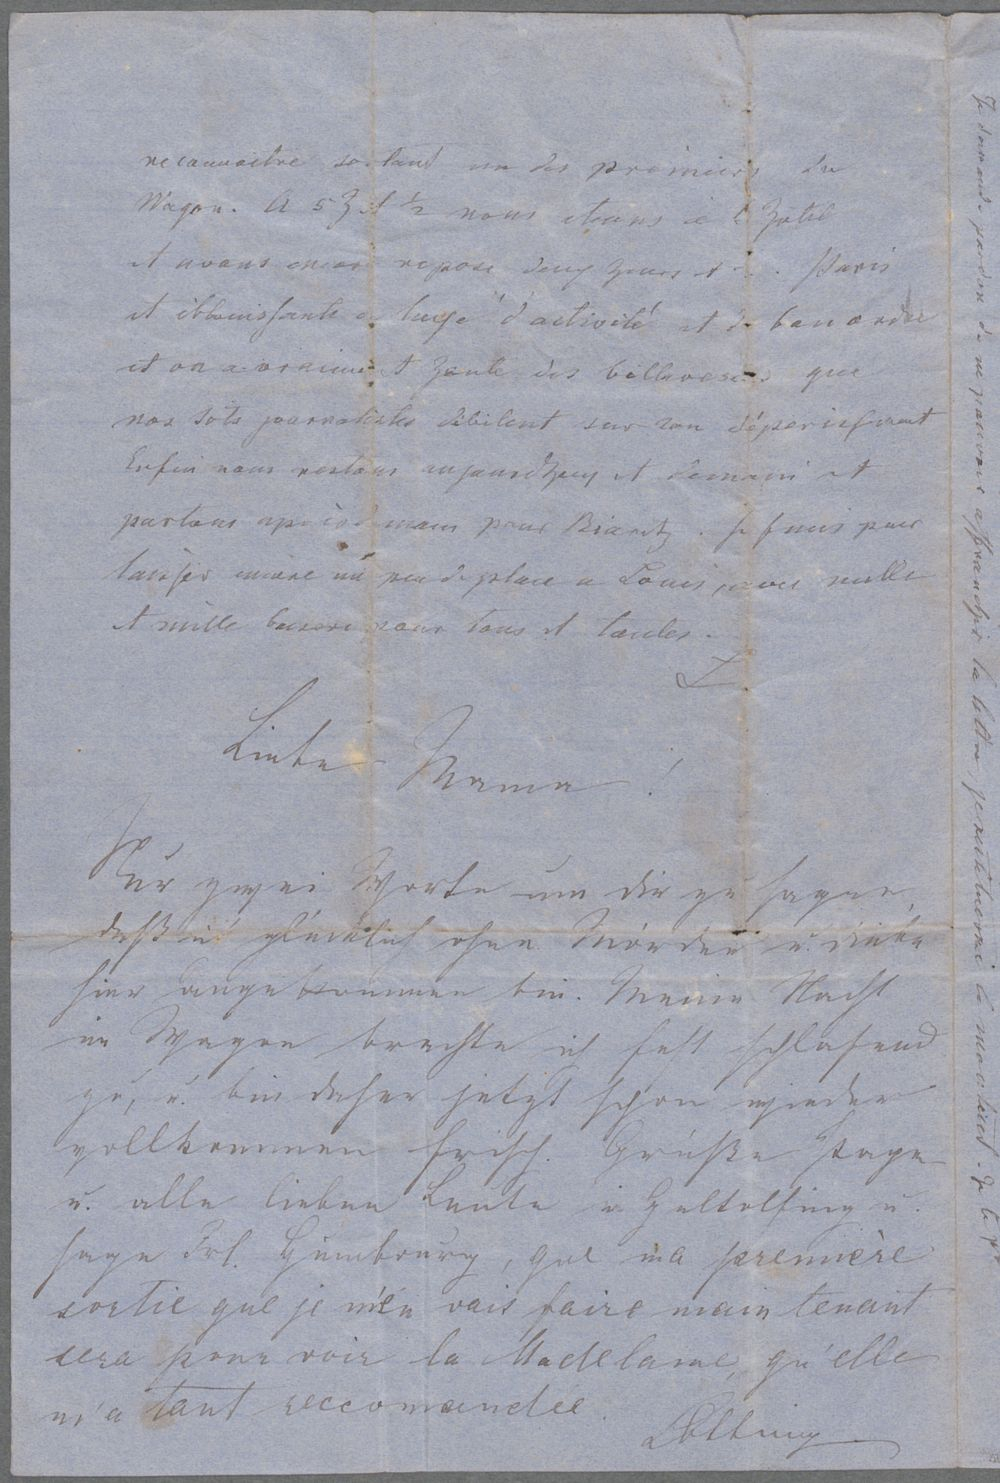 reconnaitre sortant un des prèmiers du
Wagon. A 5 h et ½ nous etions à l'hotel
et avons encore reposé deux heures et . Paris
et éblouissante de luxe d'activité et de bon ordre
et on a vraiment honte des billevesées que
nos sots journalistes débitent sur son déperissment
Enfin nous restons aujourdhuy et demain et
partons après demain pour Biaritz. Je finis pour
laisser encore un peu de place a Louis, avec mille
et mille baisers pour tous et toutes.
L
Liebe Mama!
Nur zwei Worte um dir zu sagen,
daß ich glücklich ohne Mörder u. Diebe
hier angekommen bin. Meine Nacht
im Wagon brachte ich fest schlafend
zu, u. bin daher jetzt schon wieder
vollkommen frisch. Grüße Papa
u. alle lieben Leute in Galtolfing u.
sage Frl. Himbourg, que ma première
sortie que je m'en vais faire maintenant
sera pour voir la Madelaine, qu'elle
m'a tant reccomandée.
Je demande pardon de ne pouvoir affranchir la lettre, je restituerai le montant. Je